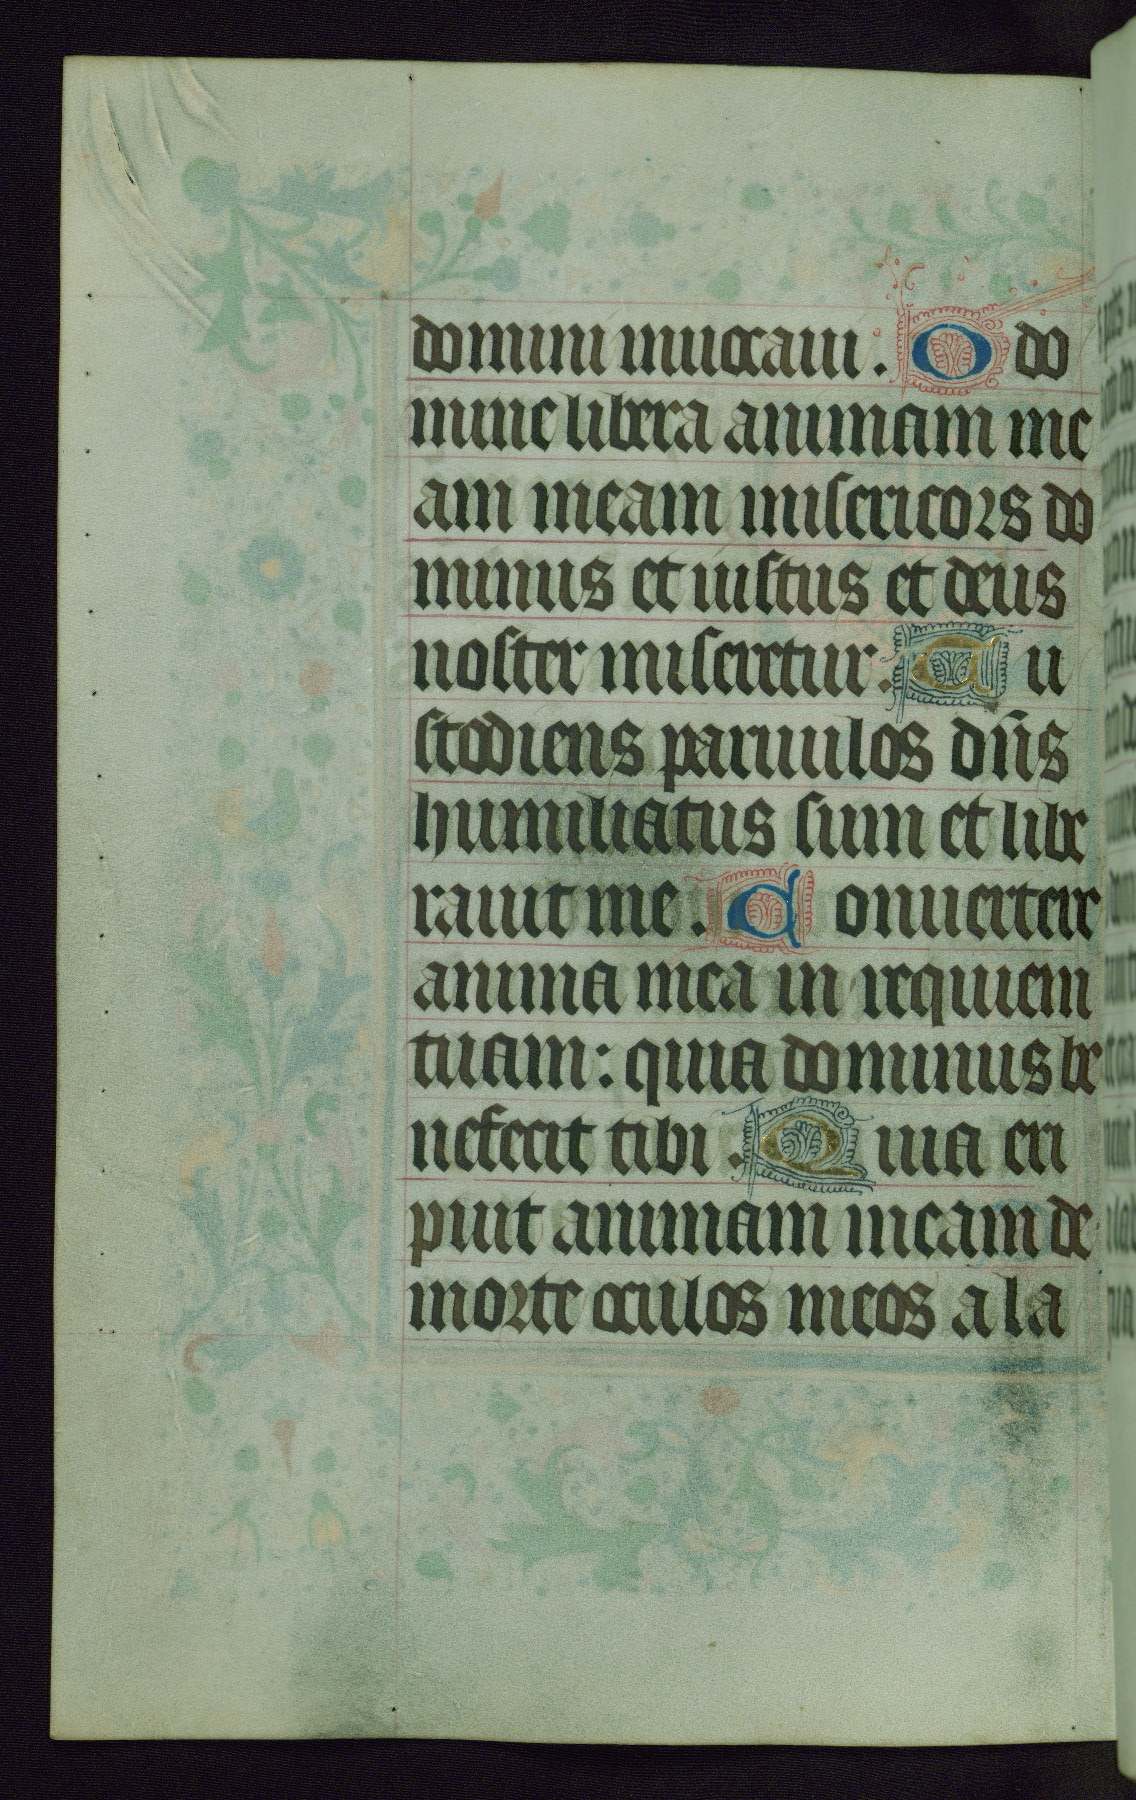 domini inuocaui. O do
mine libera animam me
am meam misericors do
minus et iustus et deus
noster miseretur. Cu
stodiens paruulos dn̄s
humiliatus sum et libe
rauit me. Conuertere
anima mea in requiem
tuam: quia dominus be
nefecit tibi. Quia eri
puit animam meam de
morte oculos meos a la